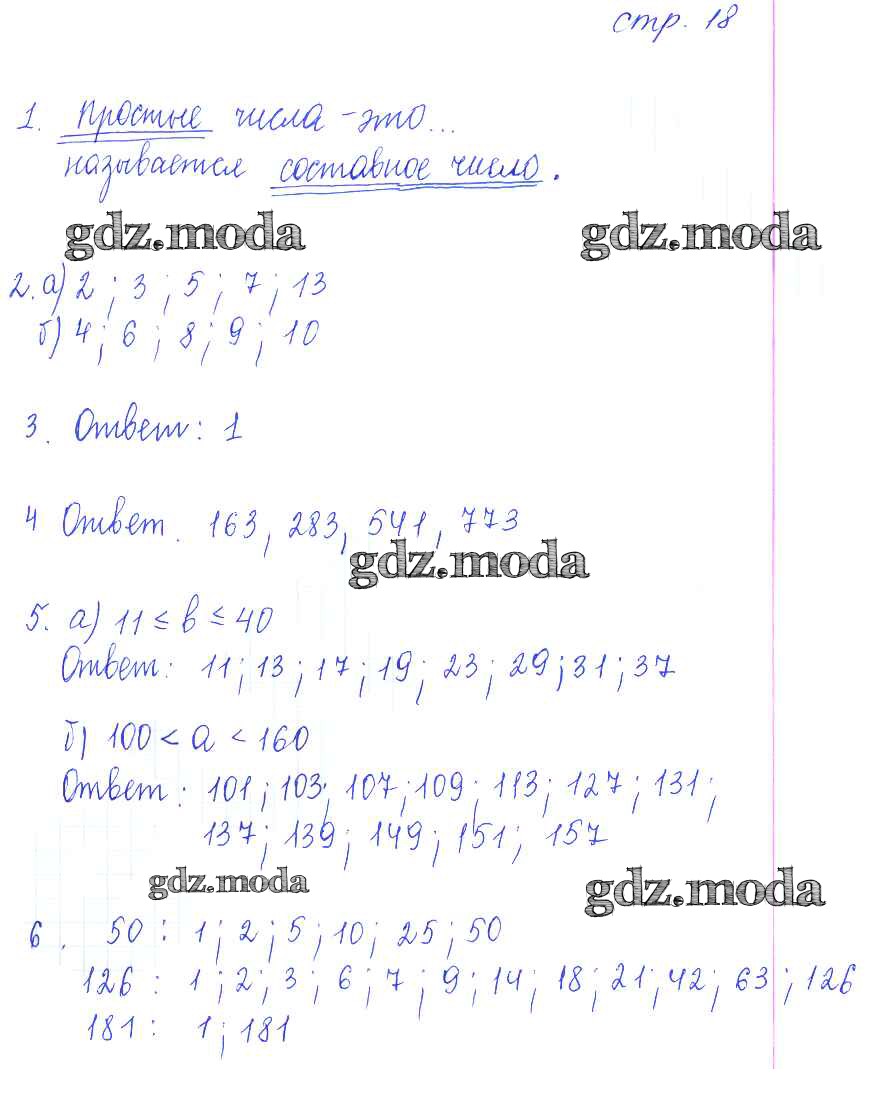 стр. 18
1. Простые числа - это...
называется составное число.
gdz.moda gdz.moda
2. а) 2 ; 3 ; 5 ; 7 ; 13
б) 4 ; 6 ; 8 ; 9 ; 10
3. Ответ: 1
4 Ответ. 163, 283, 541, 773
gdz.moda
5. а) 11 ≤ в ≤ 40
Ответ: 11 ; 13 ; 17 ; 19 ; 23 ; 29 ; 31 ; 37
б) 100 < а < 160
Ответ: 101 ; 103 ; 107 ; 109 ; 113 ; 127 ; 131 ;
137 ; 139 ; 149 ; 151 ; 157
gdz.moda gdz.moda
6. 50 : 1 ; 2 ; 5 ; 10 ; 25 ; 50
126 : 1 ; 2 ; 3 ; 6 ; 7 ; 9 ; 14 ; 18 ; 21 ; 42 ; 63 ; 126
181 : 1 ; 181